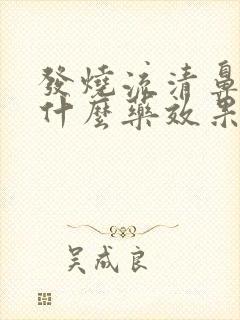 發燒流清鼻
什麼藥效果
吳成良